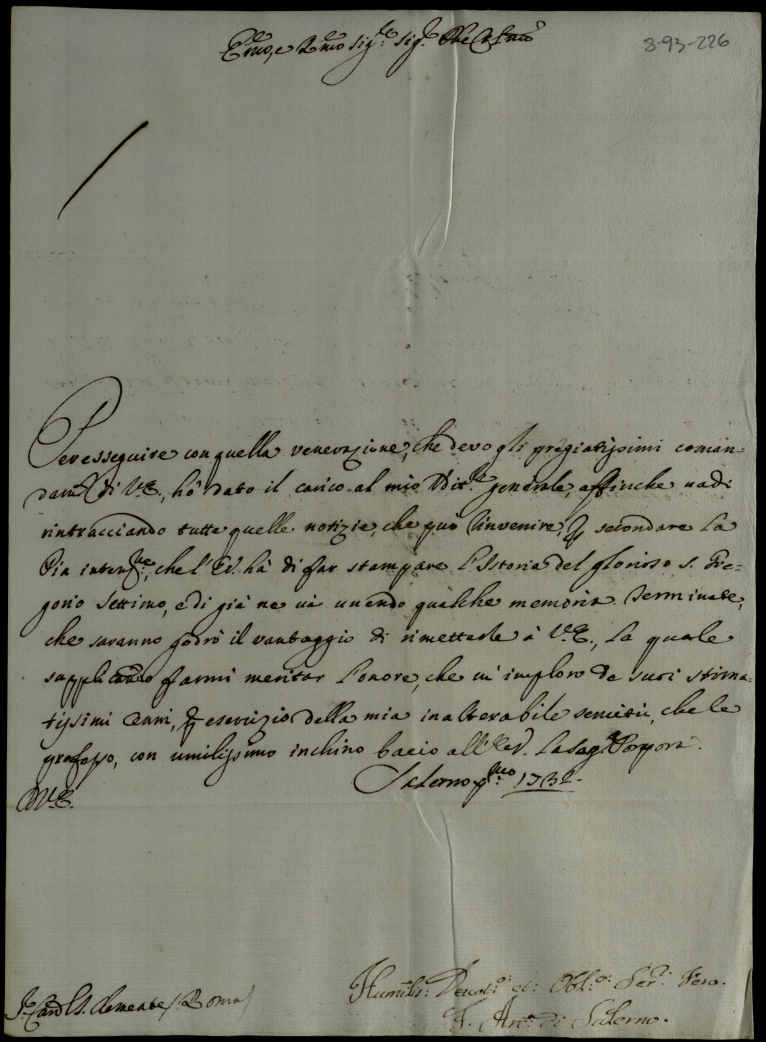 Em̃o, e R.mo Sig.re Sig.r
8-93-226
Per esseguire con quella venerazione, che devo gli pregiatissimi coman-
dam.ti di V.E., hò dato il carico al mio generale, affinche vadi
rintracciando tutte quelle notizie, che può invenire, secondare la
Pia che l'E.V. hà di far stampare l'Istoria del glorioso S. Gre-
gorio Settimo, e di già ne và unendo qualche memoria. Terminate,
che saranno godrò il vantaggio di rimetterle à V.E., la quale
supplicando farmi meritar l'onore, che m'imploro de suoi stima-
tissimi cenni, esercizio della mia inalterabile servitù, che le
professo, con umilissimo inchino bacio all'E.V. la Sag.a Porpora.
D.V.E.
Salerno p.mo
Humilis: Devot.o et: Obl.o Ser: Vero.
F. Arc: di Salerno.
S. Clemente / Roma /